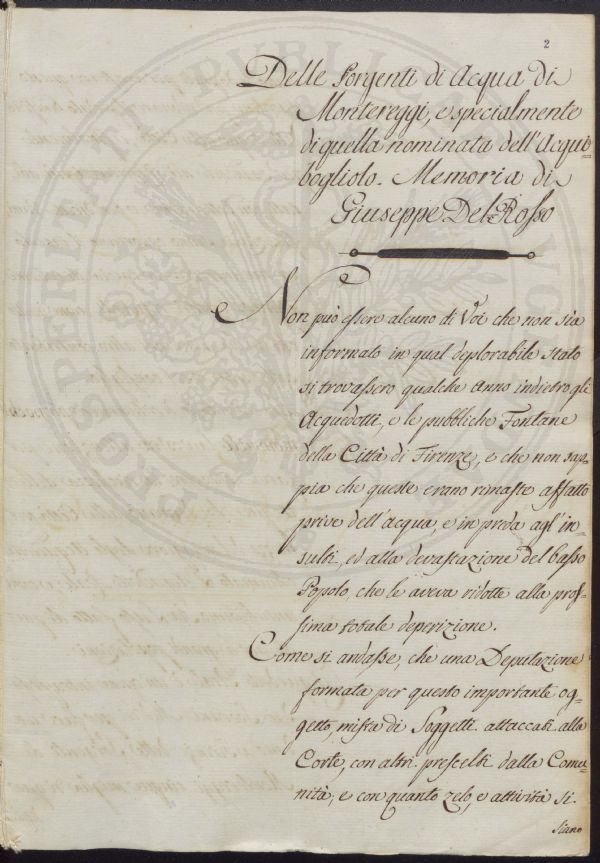 2
Delle Sorgenti di Acqua di
Montereggi, e specialmente
di quella nominata dell'Acqui=
bogliolo. Memoria di
Giuseppe Del Rosso
Non può essere alcuno di Voi che non sia
informato in qual deplorabile stato
si trovassero qualche anno indietro gli
Acquedotti, e le pubbliche Fontane
della Città di Firenze, e che non sap=
pia che queste erano rimaste affatto
prive dell'acqua, e in preda agl'in=
sulti, ed alla devastazione del basso
Popolo, che le aveva ridotte alla pros=
sima totale deperizione.
Come si andasse, che una Deputazione
formata per questo importante og=
getto, mista di Soggetti attaccati alla
Corte, con altri prescelti dalla Comu=
nità, e con quanto zelo, e attività si.
siano